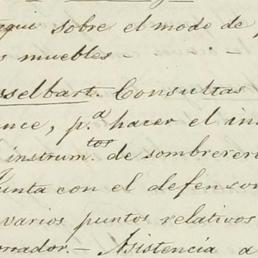 aqui sobre el modo de p
s muebles -
sselbart. Consultas
ence, p.ª hacer el ins
instrum.tos de sombrerer
Junta con el defenso
varios puntos relativos
onador. - Asistencia a